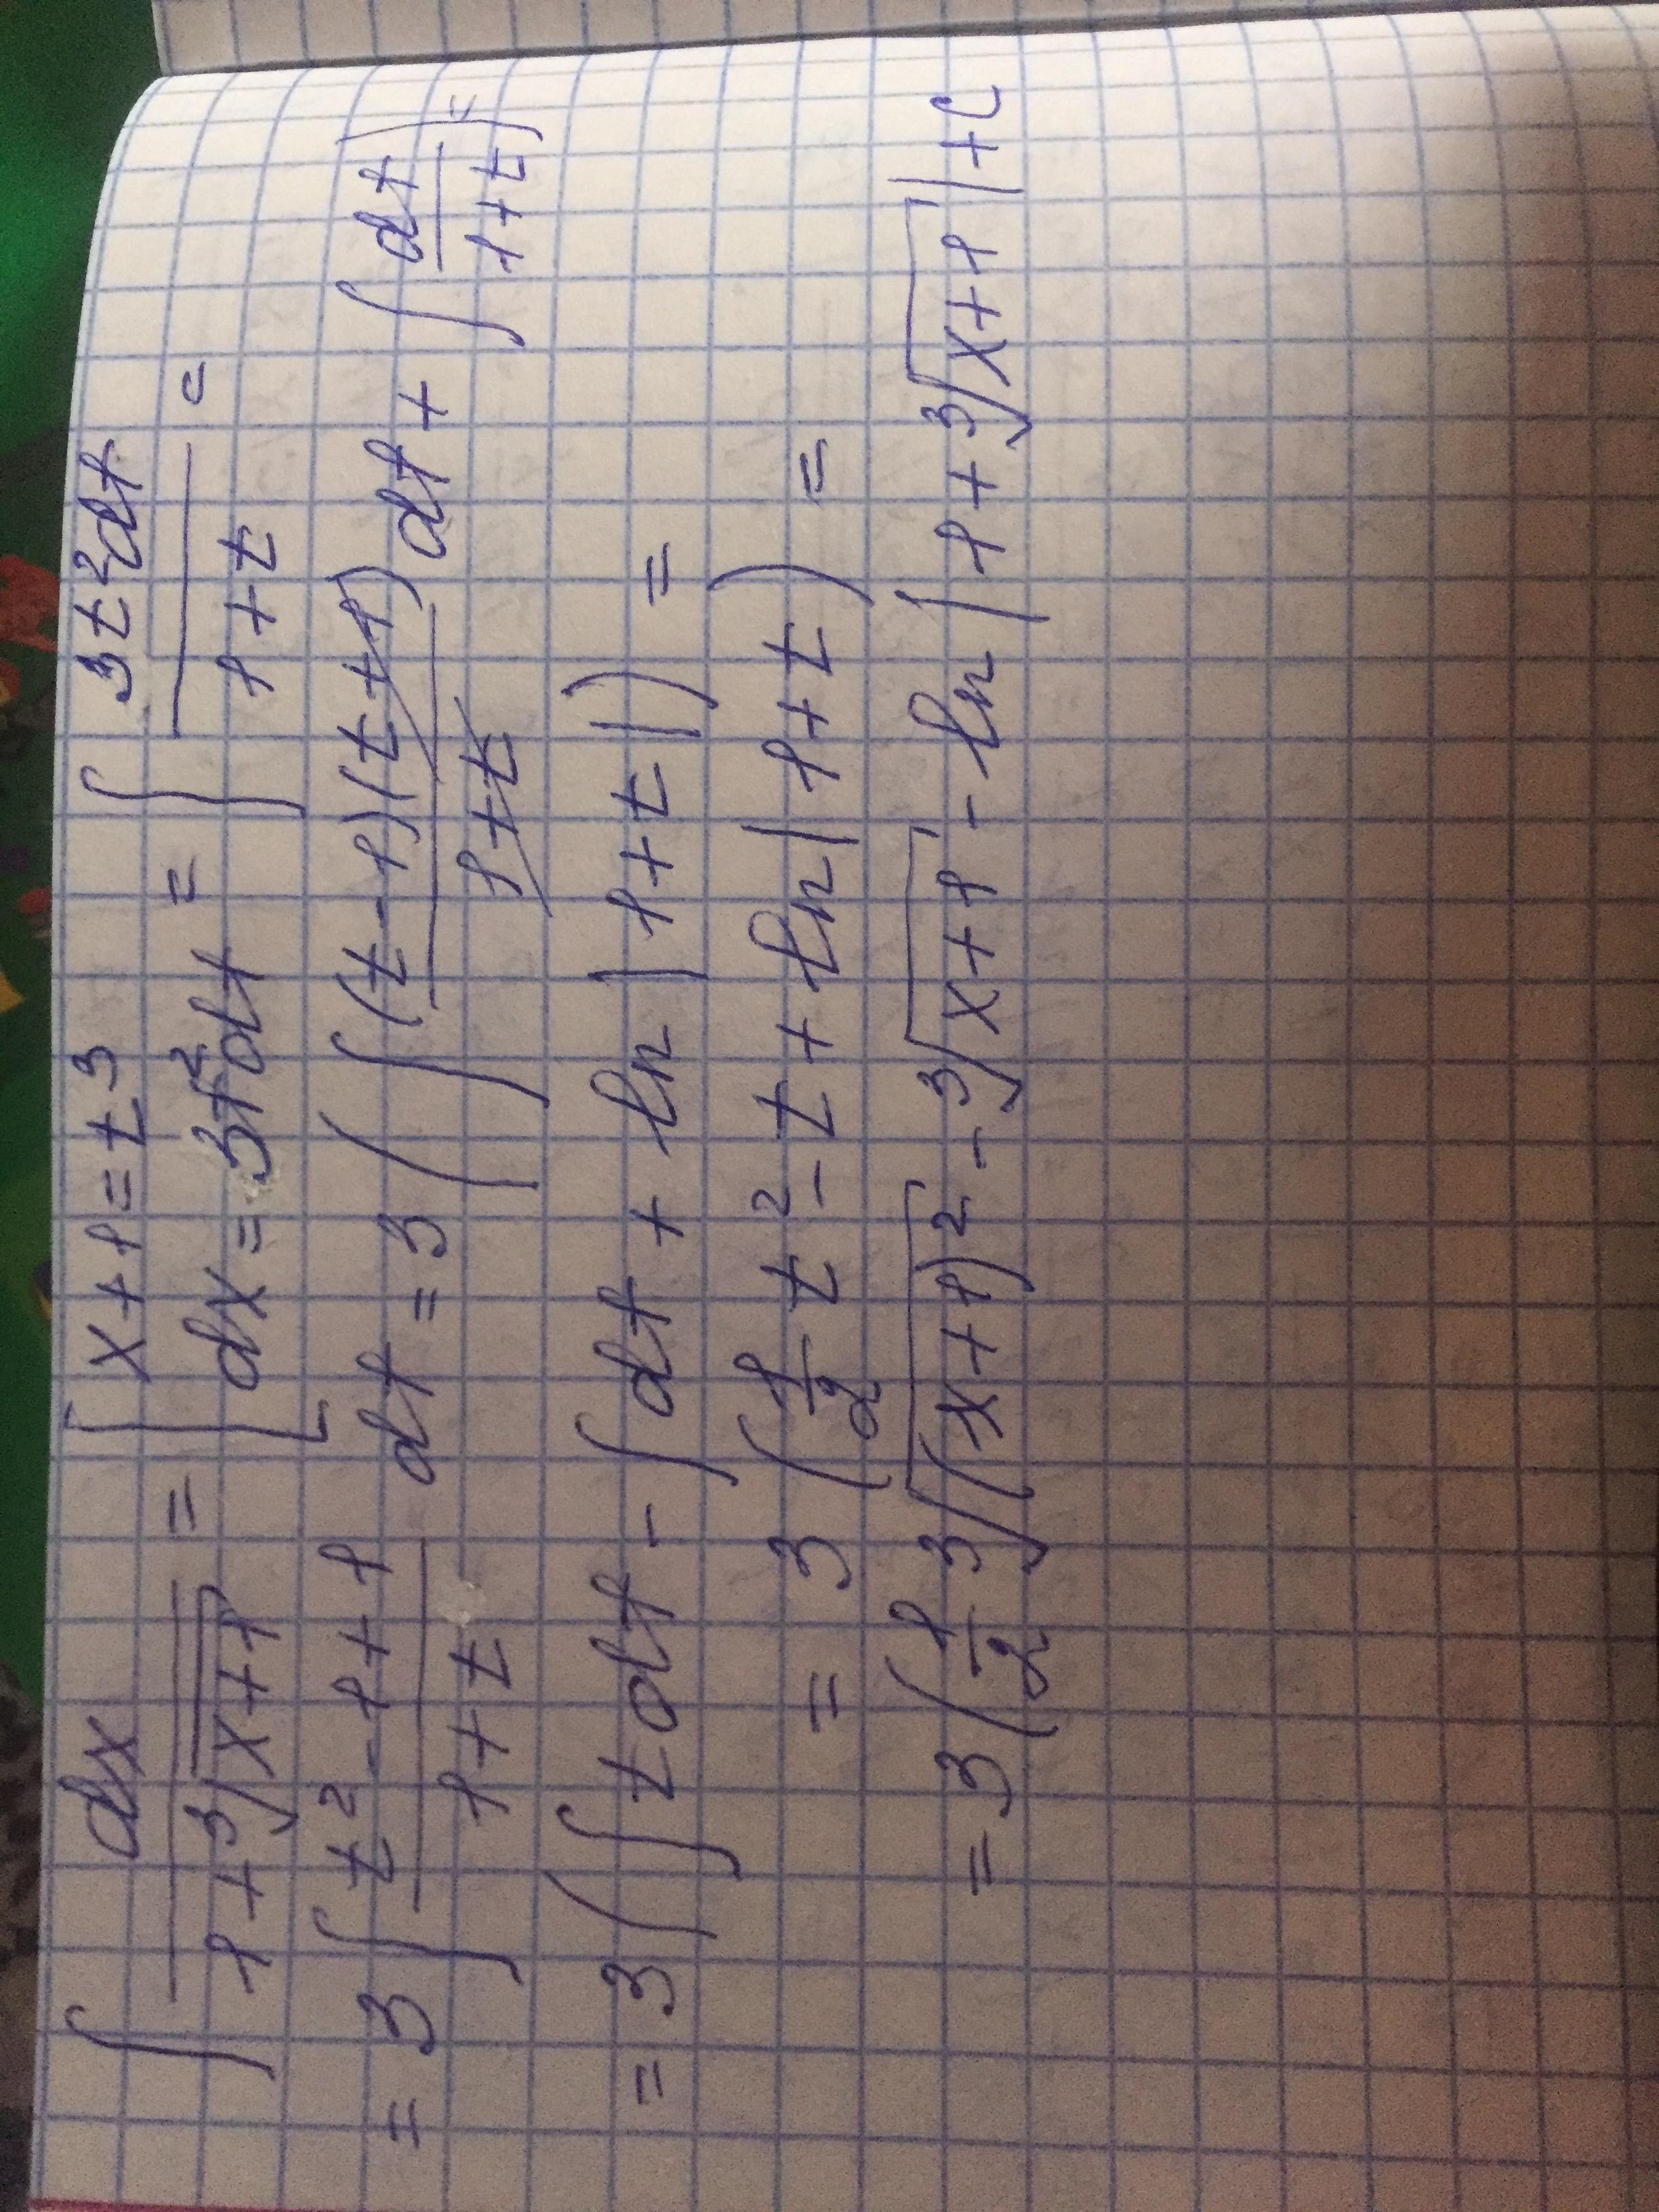 ∫ dx/(1+³√(x+1)) = [x+1=t³ dx=3t²dt = ∫ 3t²dt/(1+t) =
= 3∫ (t²-1+1)/(1+t) dt = 3(∫ (t-1)(t+1)/(1+t) dt + ∫ dt/(1+t)) =
= 3(∫tdt - ∫dt + ln|1+t|) =
= 3(1/2 t² - t + ln|1+t) =
= 3(1/2 ³√(x+1)² - ³√x+1 - ln|1+³√x+1|+C